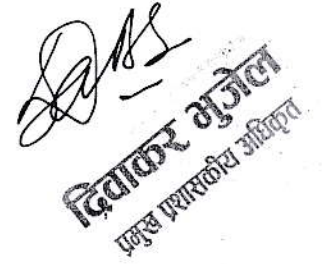 दिवाकर भुजेल
प्रमुख प्रशासकीय अधिकृत